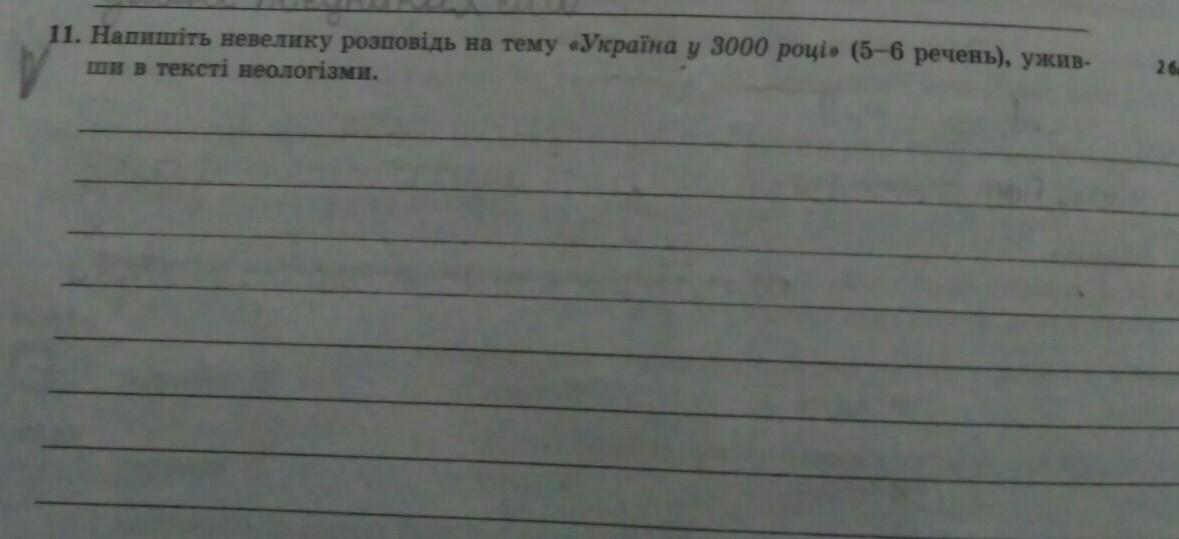 11. Напишіть невелику розповідь на тему «Україна у 3000 році» (5–6 речень), ужив-
ши в тексті неологізми.